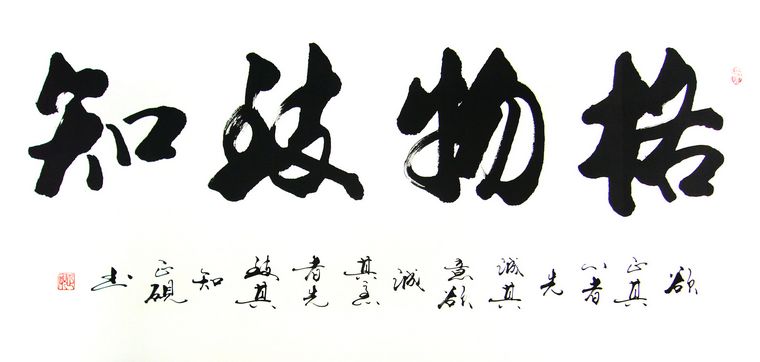 格物致知
欲正其心者先誠其意欲誠其意者先致其知 正硯书